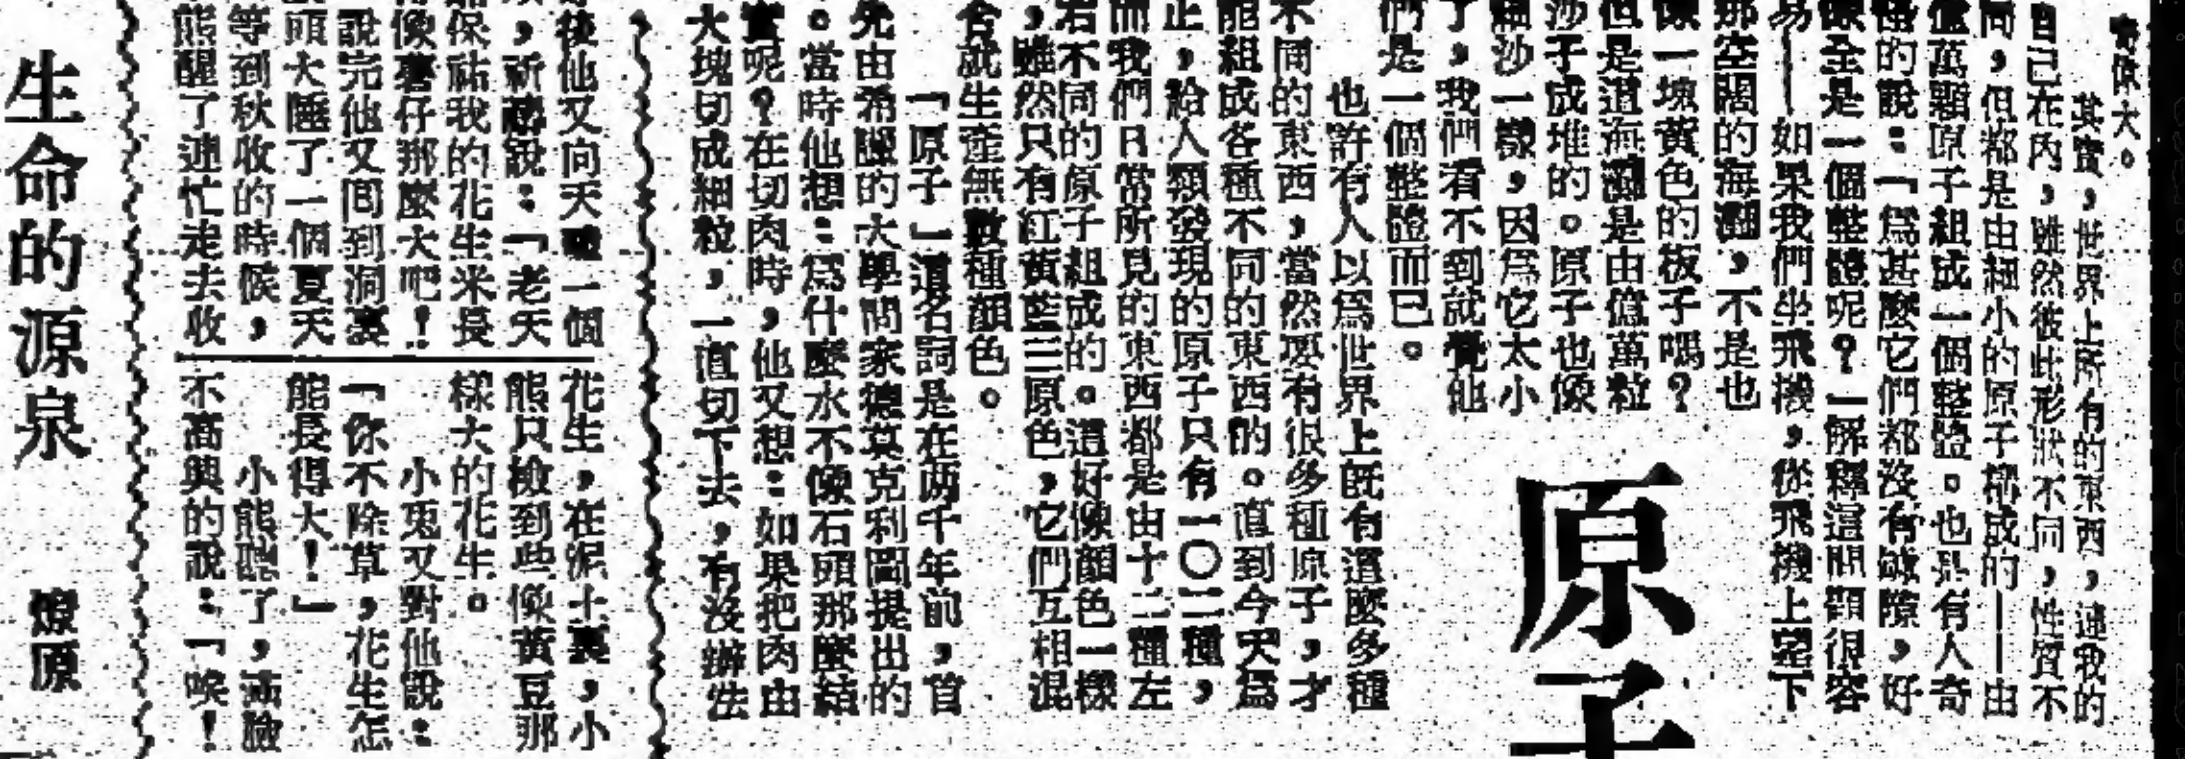 偉大。
其實,世界上所有的東西,連我的
自己在內,雖然彼此形狀不同,性質不
同,但都是由細小的原子構成的——由
億萬顆原子組成一個整體。也許有人奇
怪的說:「爲甚麼它們都沒有縫隙,好
像全是一個整體呢?」解釋這問題很容
易——如果我們坐飛機,從飛機上望下
那空闊的海灘,不是也
像一塊黃色的板子嗎?
但是這海灘是由億萬粒
沙子成堆的。原子也像
細沙一樣,因爲它太小
了,我們看不到就覺他
們是一個整體而已。
原子
也許有人以爲世界上旣有這麼多種
不同的東西,當然要有很多種原子,才
能組成各種不同的東西的。直到今天爲
止,給人類發現的原子只有一〇二種,
而我們日常所見的東西都是由十二種左
右不同的原子組成的。這好像顏色一樣
,雖然只有紅黃藍三原色,它們互相混
合就生產無數種顏色。
「原子」這名詞是在两千年前,首
先由希臘的大學問家德莫克利圖提出的
。當時他想:爲什麼水不像石頭那麼結
實呢?在切肉時,他又想:如果把肉由
大塊切成細粒,一直切下去,有沒辦法
後他又向天 一個
,祈禱說:「老天
保祐我的花生米長
像薯仔那麼大吧!
說完他又囘到洞裏
頭大睡了一個夏天
等到秋收的時候,
熊醒了連忙走去收
花生,在泥土裏,小
熊只檢到些像黃豆那
樣大的花生。
小兎又對他說:
「你不除草,花生怎
能長得大!」
小熊聽了,滿臉
不高興的說:「唉!
生命的源泉
燎原